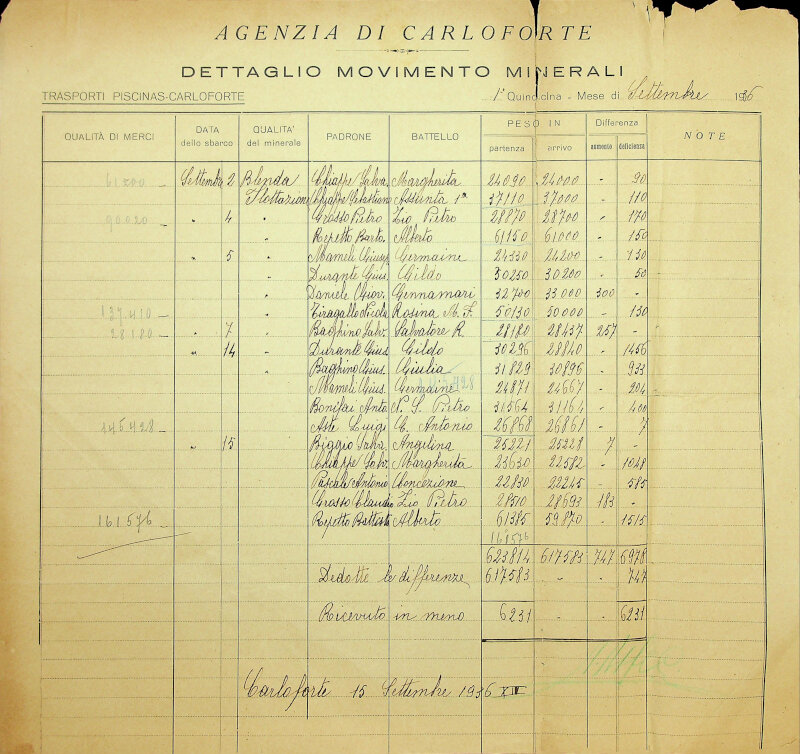 AGENZIA DI CARLOFORTE
DETTAGLIO MOVIMENTO MINERALI
TRASPORTI PISCINAS-CARLOFORTE 1ª Quindicina - Mese di Settembre 1936
QUALITÀ DI MERCI DATA dello sbarco QUALITA' del minerale PADRONE BATTELLO PESO IN partenza arrivo Differenza aumento deficienza NOTE
61200 - Settembre 2 Blenda Chiappe Salva. Margherita 24090 24000 - 90
Flottazione Chiappe Sebastiano Assunta 1ª 37110 37000 - 110
90020 - " 4 " Grosso Pietro Zio Pietro 28870 28700 - 170
" Repetto Barto. Alberto 61150 61000 - 150
" 5 " Mameli Giusep. Germaine 24330 24200 - 130
" Durante Gius. Gildo 30250 30200 - 50
" Daniele Giov. Gennamari 32700 33000 300 -
137410 - " Tiragallo Nicola Rosina M. F. 50130 50000 - 130
28180 - " 7 " Baghino Salv. Salvatore R. 28180 28437 257 -
" 14 " Durante Gius. Gildo 30296 28840 - 1456
Baghino Gius. Giulia 31829 30896 - 933
Mameli Gius. Germaine 24871 24667 - 204
Bonifai Anto. N. S. Pietro 31564 31164 - 400
145428 - Aste Luigi C. Antonio 26868 26861 - 7
" 15 Biggio Salva. Angelina 25221 25228 7 -
Chiappe Salv. Margherita 23630 22582 - 1048
Pascale Antonio Concezione 22830 22245 - 585
Grosso Claudio Zio Pietro 28510 28693 183 -
161576 - Repetto Battista Alberto 61385 59870 - 1515
161576
623814 617583 747 6978
Dedotte le differenze 617583 - - 747
Ricevuto in meno 6231 - - 6231
Carloforte 15 Settembre 1936 XIV